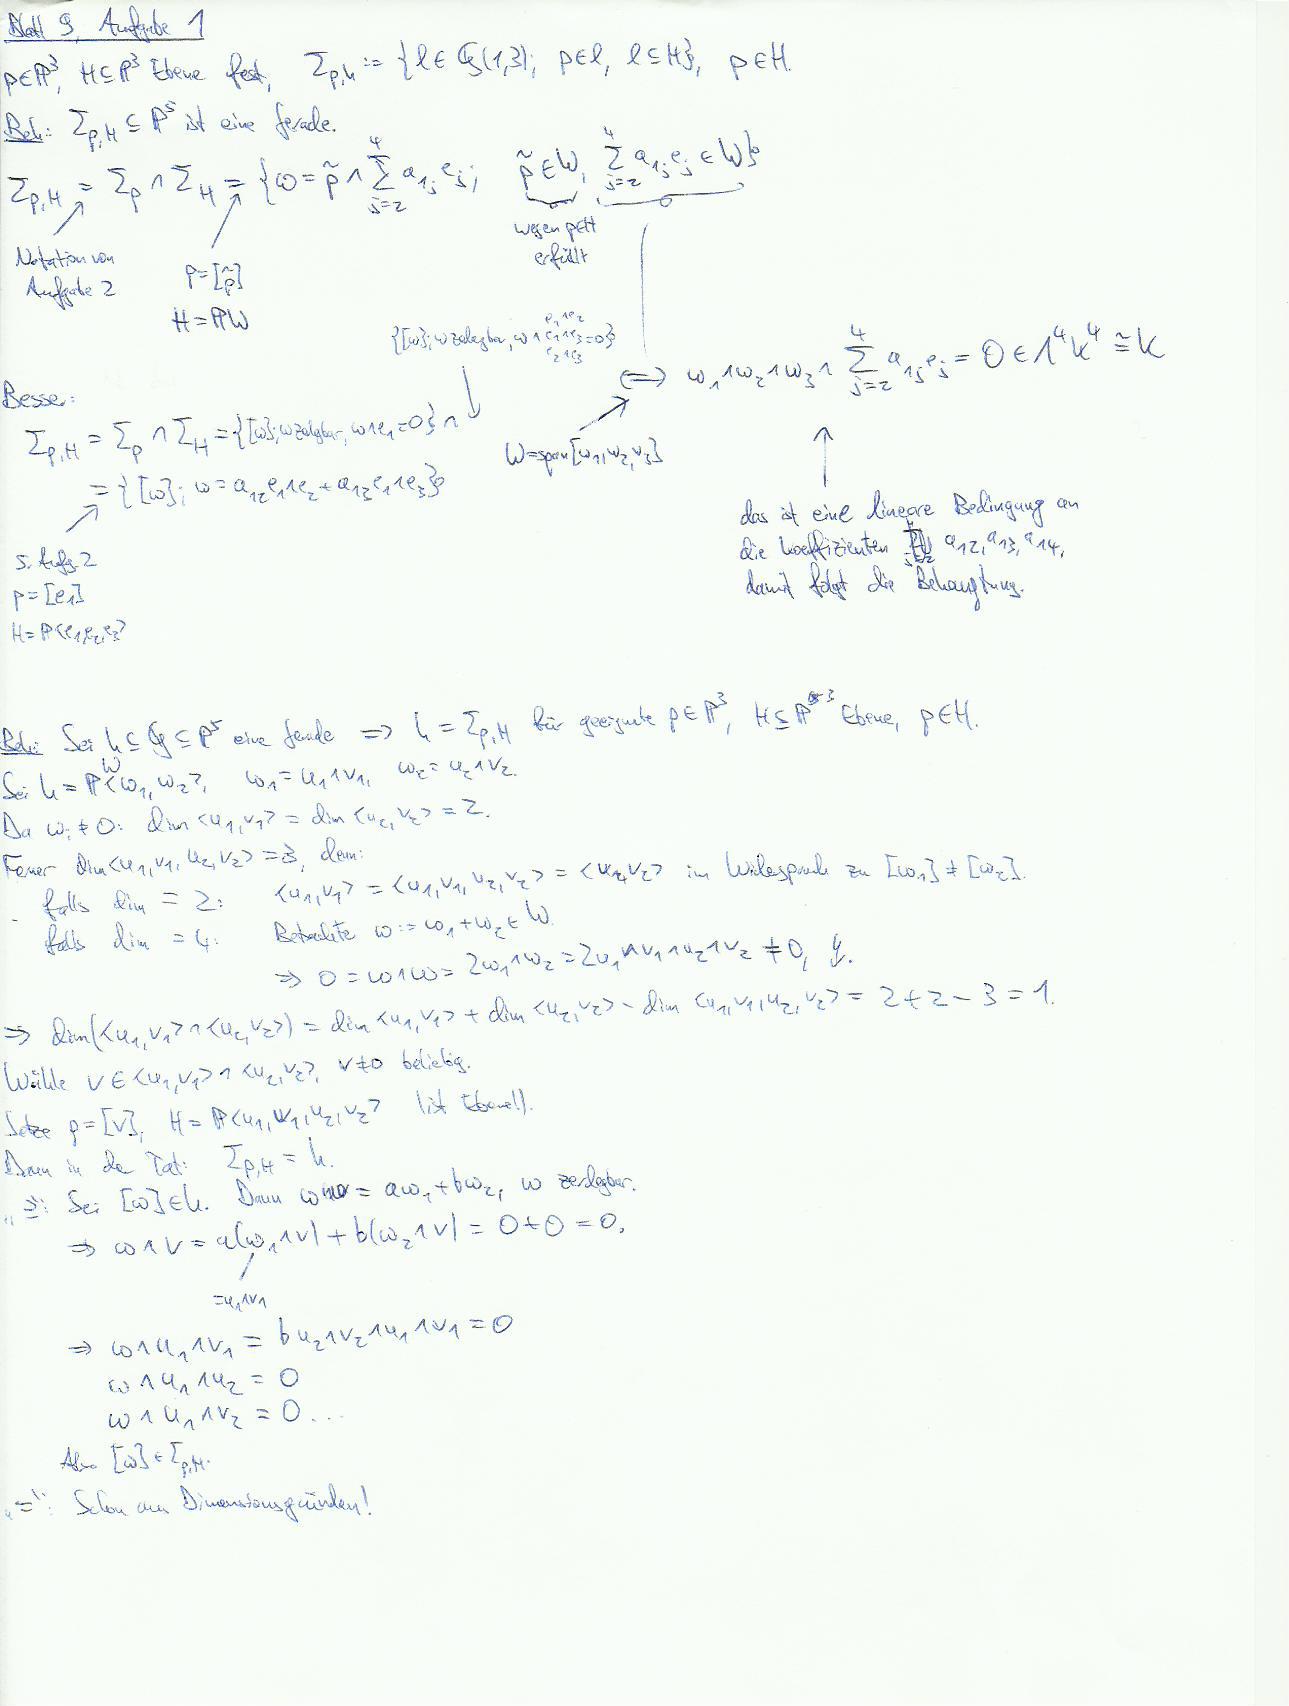 Blatt 9, Aufgabe 1
p∈ℙ³, H⊆ℙ³ Ebene fest, Σ_{p,H} := {l∈𝔾(1,3); p∈l, l⊆H}, p∈H.
Beh: Σ_{p,H} ⊆ ℙ⁵ ist eine Gerade.
Σ_{p,H} = Σ_p ∩ Σ_H = {ω = p̃ ∧ Σ_{j=2}^4 a_{1j} e_j; p̃∈W, Σ_{j=2}^4 a_{1j} e_j ∈ W}
Notation von Aufgabe 2
p = [p̃]
H = ℙW
wegen p∈H erfüllt
{[ω]; ω zerlegbar, ω∧ e_1∧e_2 e_1∧e_3 e_2∧e_3 = 0}
⟺ ω_1∧ω_2∧ω_3∧ Σ_{j=2}^4 a_{1j} e_j = 0 ∈ Λ⁴k⁴ ≅ k
W = span[w_1, w_2, w_3]
das ist eine lineare Bedingung an
die Koeffizienten a_{12}, a_{13}, a_{14},
damit folgt die Behauptung.
Besser:
Σ_{p,H} = Σ_p ∩ Σ_H = {[ω]; ω zerlegbar, ω∧e_1=0} ∩
= {[ω]; ω = a_{12} e_1∧e_2 + a_{13} e_1∧e_3}
s. Aufg. 2
p = [e_1]
H = ℙ<e_1,e_2,e_3>
Beh: Sei h ⊆ 𝔾 ⊆ ℙ⁵ eine Gerade ⟹ h = Σ_{p,H} für geeignete p∈ℙ³, H⊆ℙ³ Ebene, p∈H.
W
Sei h = ℙ<ω_1, ω_2>, ω_1 = u_1∧v_1, ω_2 = u_2∧v_2.
Da ω_i ≠ 0: dim<u_1,v_1> = dim<u_2,v_2> = 2.
Ferner dim<u_1,v_1,u_2,v_2> = 3, denn:
falls dim = 2: <u_1,v_1> = <u_1,v_1,u_2,v_2> = <u_2,v_2> im Widerspruch zu [ω_1] ≠ [ω_2].
falls dim = 4: Betrachte ω := ω_1+ω_2 ∈ W.
⟹ 0 = ω∧ω = 2ω_1∧ω_2 = 2u_1∧v_1∧u_2∧v_2 ≠ 0, ↯.
⟹ dim(<u_1,v_1>∩<u_2,v_2>) = dim<u_1,v_1> + dim<u_2,v_2> − dim<u_1,v_1,u_2,v_2> = 2+2−3 = 1.
Wähle v ∈ <u_1,v_1>∩<u_2,v_2>, v≠0 beliebig.
Setze p = [v], H = ℙ<u_1,v_1,u_2,v_2> (ist Ebene!).
Dann in der Tat: Σ_{p,H} = h.
„⊇": Sei [ω]∈h. Dann ω = aω_1+bω_2, ω zerlegbar.
⟹ ω∧v = a(ω_1∧v) + b(ω_2∧v) = 0+0 = 0,
=u_1∧v_1
⟹ ω∧u_1∧v_1 = b u_2∧v_2∧u_1∧v_1 = 0
ω∧u_1∧u_2 = 0
ω∧u_1∧v_2 = 0 ...
Also [ω]∈Σ_{p,H}.
„=": Schon aus Dimensionsgründen!